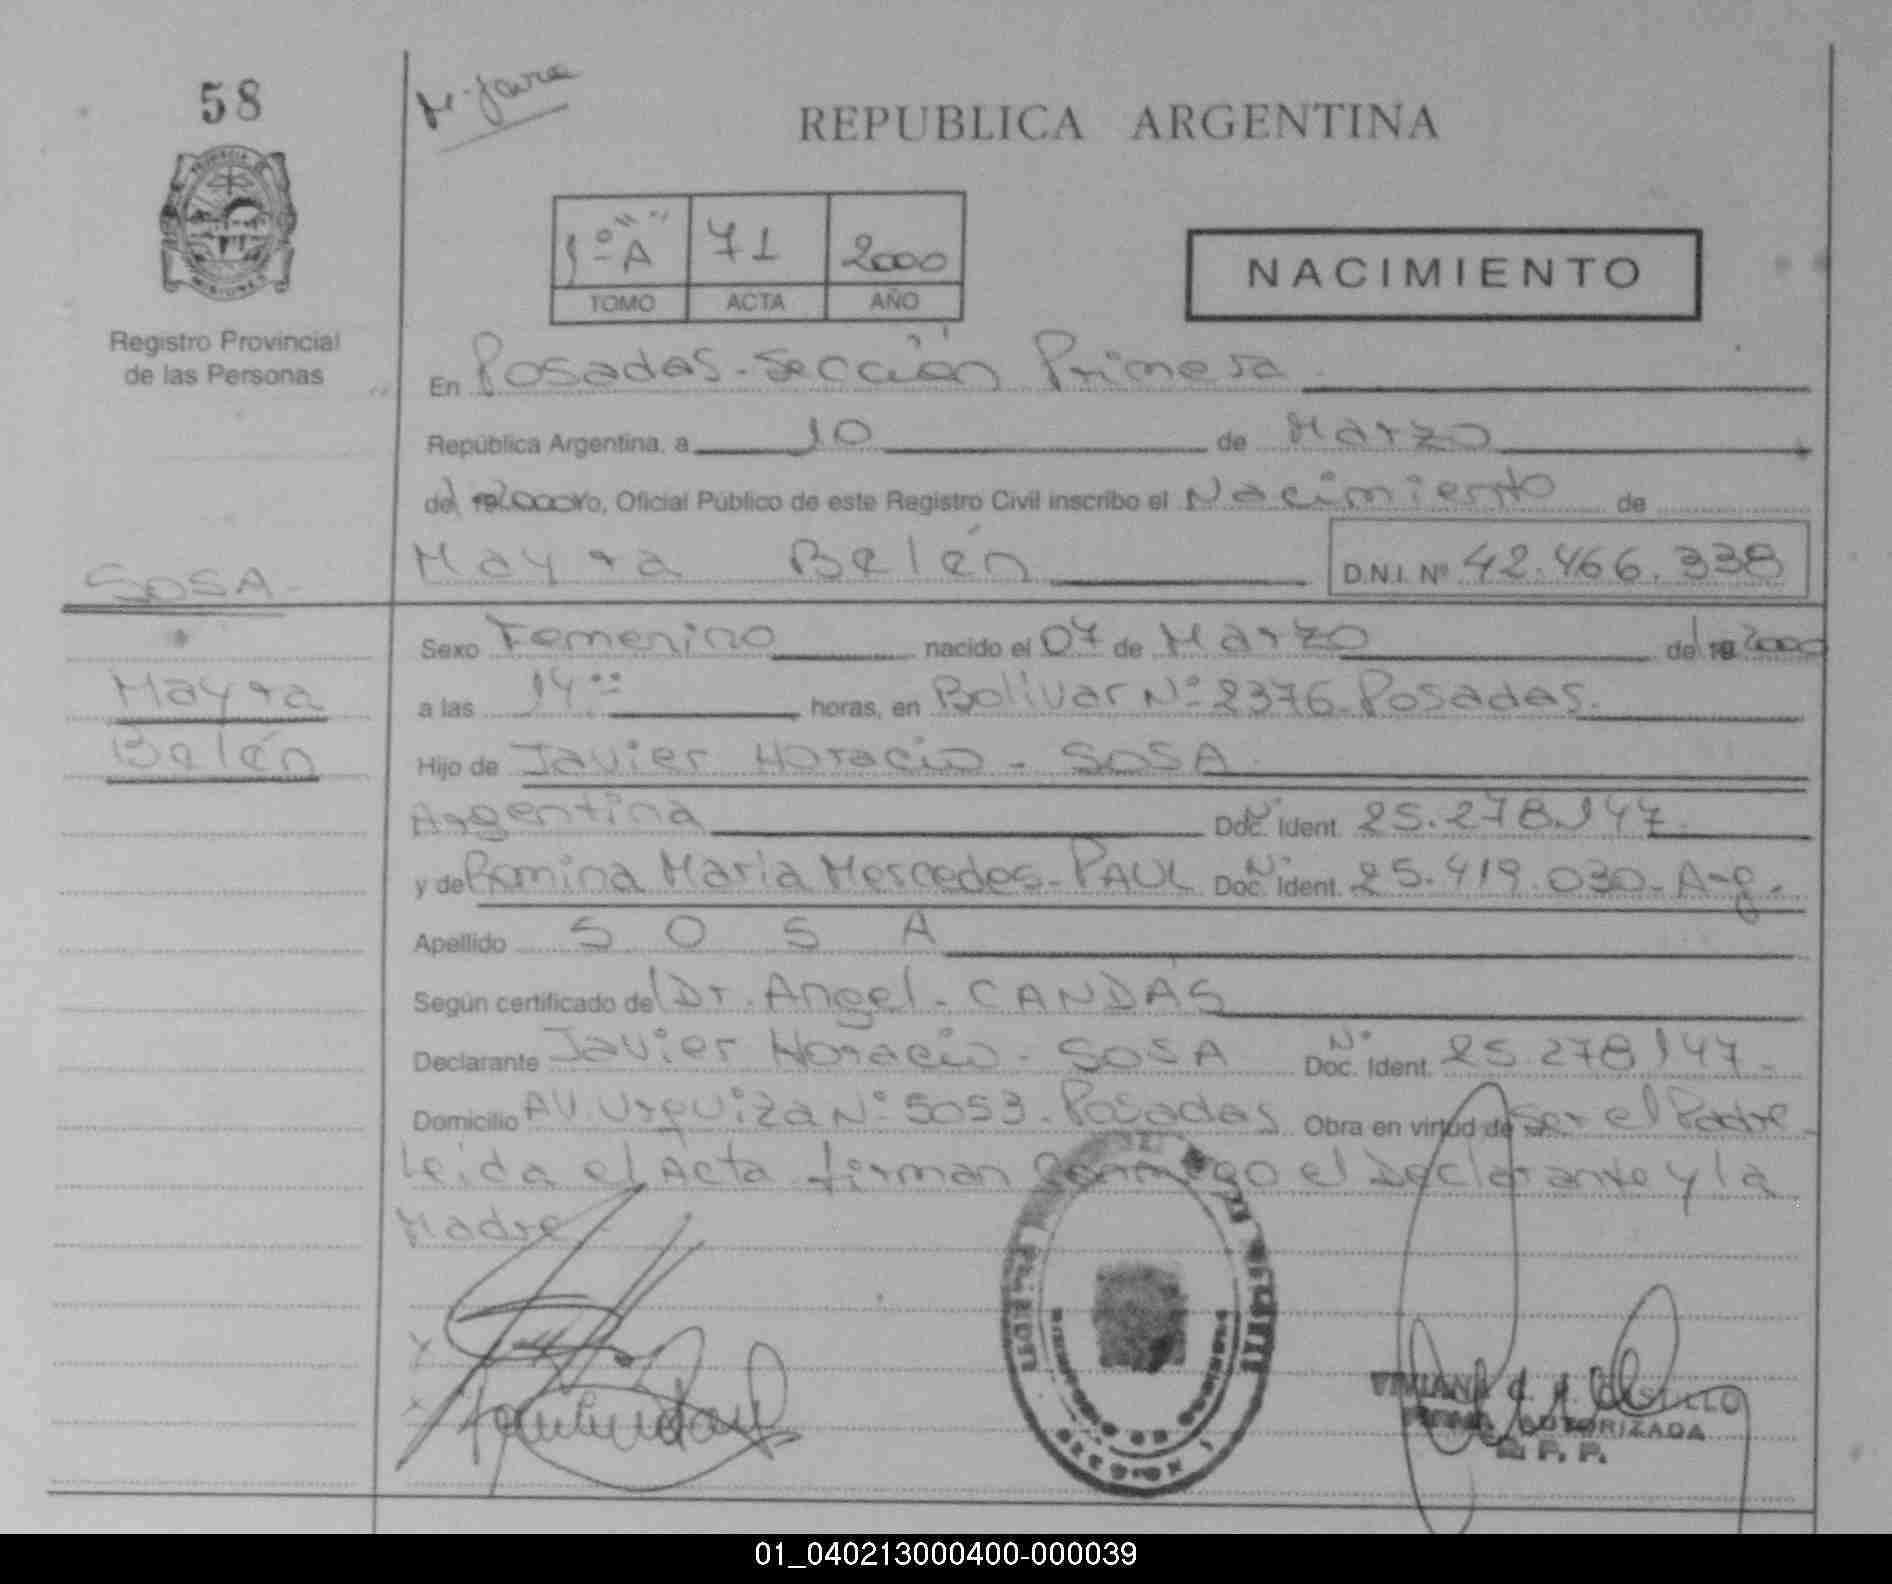 58
M. Jara
REPUBLICA ARGENTINA
1º "A" 71 2000
TOMO ACTA AÑO
NACIMIENTO
Registro Provincial
de las Personas
En Posadas - Sección Primera
República Argentina, a 10 de Marzo
del 2000 Yo, Oficial Público de este Registro Civil inscribo el Nacimiento de
Mayra Belén D.N.I. Nº 42.466.338
SOSA -
Mayra
Belén
Sexo Femenino nacido el 07 de Marzo del 2000
a las 14:00 horas, en Bolívar Nº 2376 - Posadas.
Hijo de Javier Horacio - SOSA
Argentina Nº Doc. Ident. 25.278.147.
y de Romina María Mercedes - PAUL Nº Doc. Ident. 25.419.030 - Arg.
Apellido S O S A
Según certificado del Dr. Angel - CANDÁS
Declarante Javier Horacio - SOSA Nº Doc. Ident. 25.278.147 -
Domicilio AV. Urquiza Nº 5053 - Posadas Obra en virtud de Ser el Padre -
Leida el Acta firman conmigo el Declarante y la
Madre
VIVIANA CASTILLO
FIRMA AUTORIZADA
R. P. P.
01_040213000400-000039